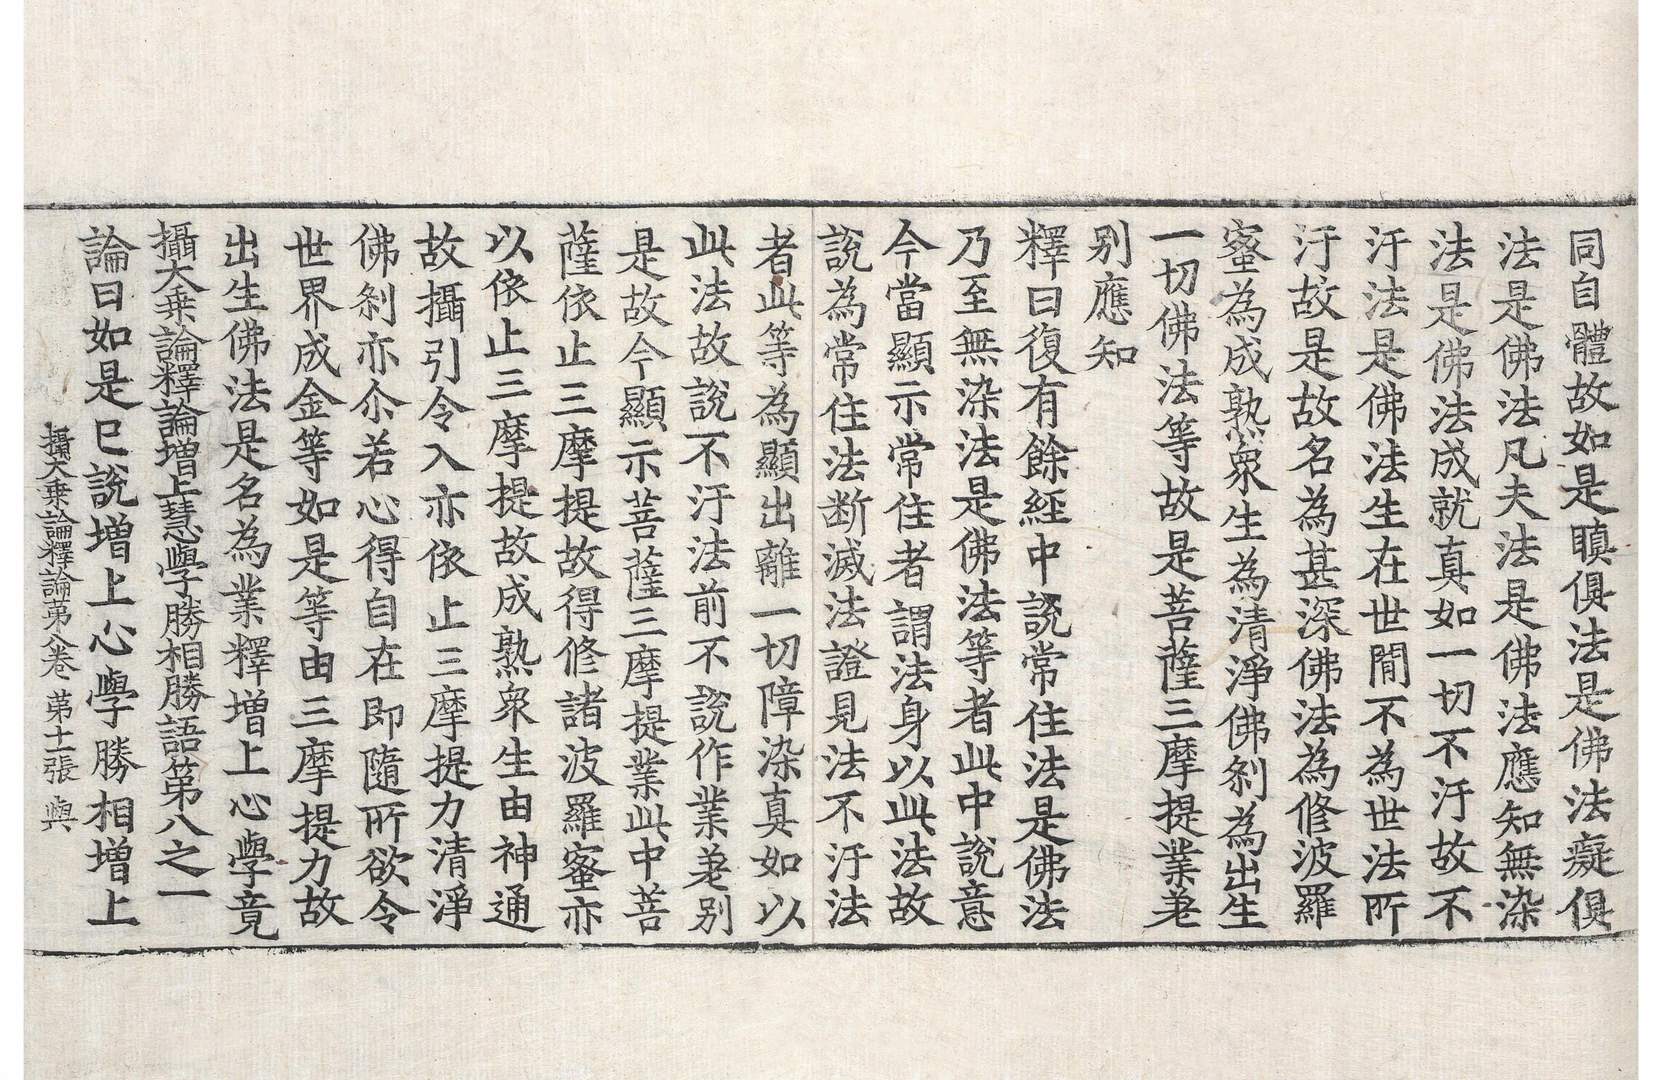 同自體故如是瞋俱法是佛法癡俱
法是佛法凡夫法是佛法應知無染
法是佛法成就真如一切不汙故不
汙法是佛法生在世間不為世法所
汙故是故名為甚深佛法為修波羅
蜜為成熟衆生為清淨佛剎為出生
一切佛法等故是菩薩三摩提業差
別應知
釋曰復有餘經中說常住法是佛法
乃至無染法是佛法等者此中說意
今當顯示常住者謂法身以此法故
說為常住法断滅法證見法不汙法
者此等為顯出離一切障染真如以
此法故說不汙法前不說作業差别
是故今顯示菩薩三摩提業此中菩
薩依止三摩提故得修諸波羅蜜亦
以依止三摩提故成熟衆生由神通
故攝引令入亦依止三摩提力清淨
佛剎亦尒若心得自在即隨所欲令
世界成金等如是等由三摩提力故
出生佛法是名為業釋增上心學竟
攝大乗論釋論增上慧學勝相勝語第八之一
論曰如是已說增上心學勝相增上
攝大乗論釋論苐八卷 苐十張 與